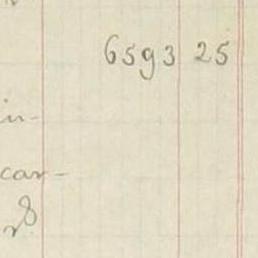 6593 25
in-
car-